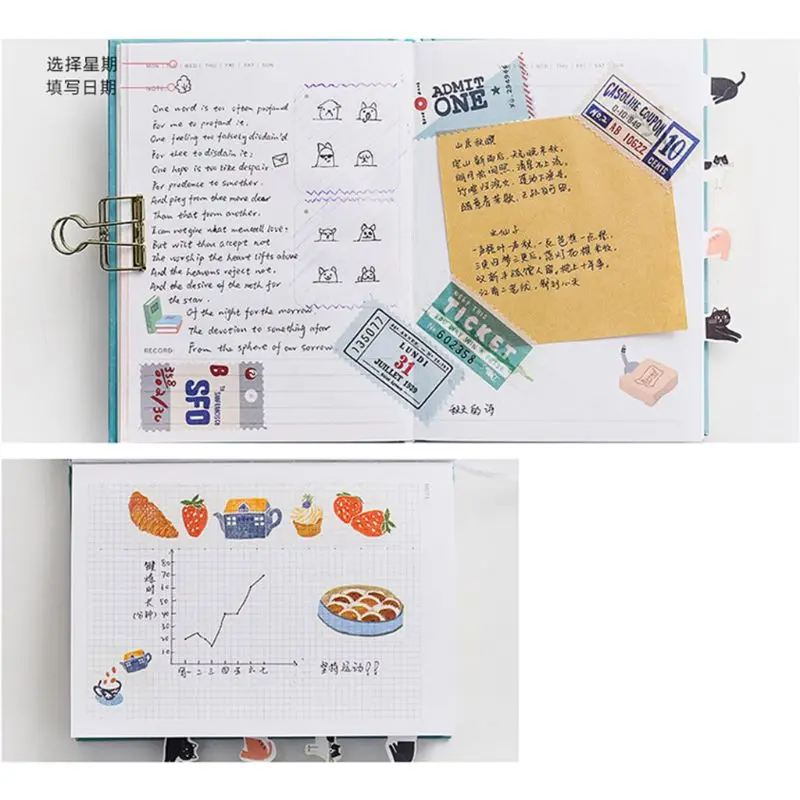 选择星期
填写日期
MON | TUE | WED | THU | FRI | SAT | SUN
NOTE
One word is too often profaned
For me to profane it.
One feeling too falsely disdain'd
For thee to disdain it;
One hope is too like despair
For prudence to smother.
And pity from thee more dear
Than that from another.
I can not give what men call love:
But wilt thou accept not
The worship the heart lifts above
And the heavens reject not.
And the desire of the moth for
the star.
Of the night for the morrow
The devotion to something afar
From the sphere of our sorrow
RECORD:
358
002/30
B
SFO
SANFRANCISCO
MON | TUE | WED | THU | FRI | SAT | SUN
ADMIT
ONE
No. 294946
GASOLINE COUPON
D-10/849
No.2 AB 10622
10
CENTS
山居秋暝
空山新雨后,天气晚来秋。
明月松间照,清泉石上流。
竹喧归浣女,莲动下渔舟。
随意春芳歇,王孙自可留。
水仙子
一声梧叶一声秋,一点芭蕉一点愁,
三更归梦三更后。
135077
LUNDI
31
JUILLET 1929
TICKET
No 602358
秋天的诗
NOTE
锻炼时长
(分钟)
80
70
60
50
40
30
20
10
周一 二 三 四 五 六 七
坚持运动!!